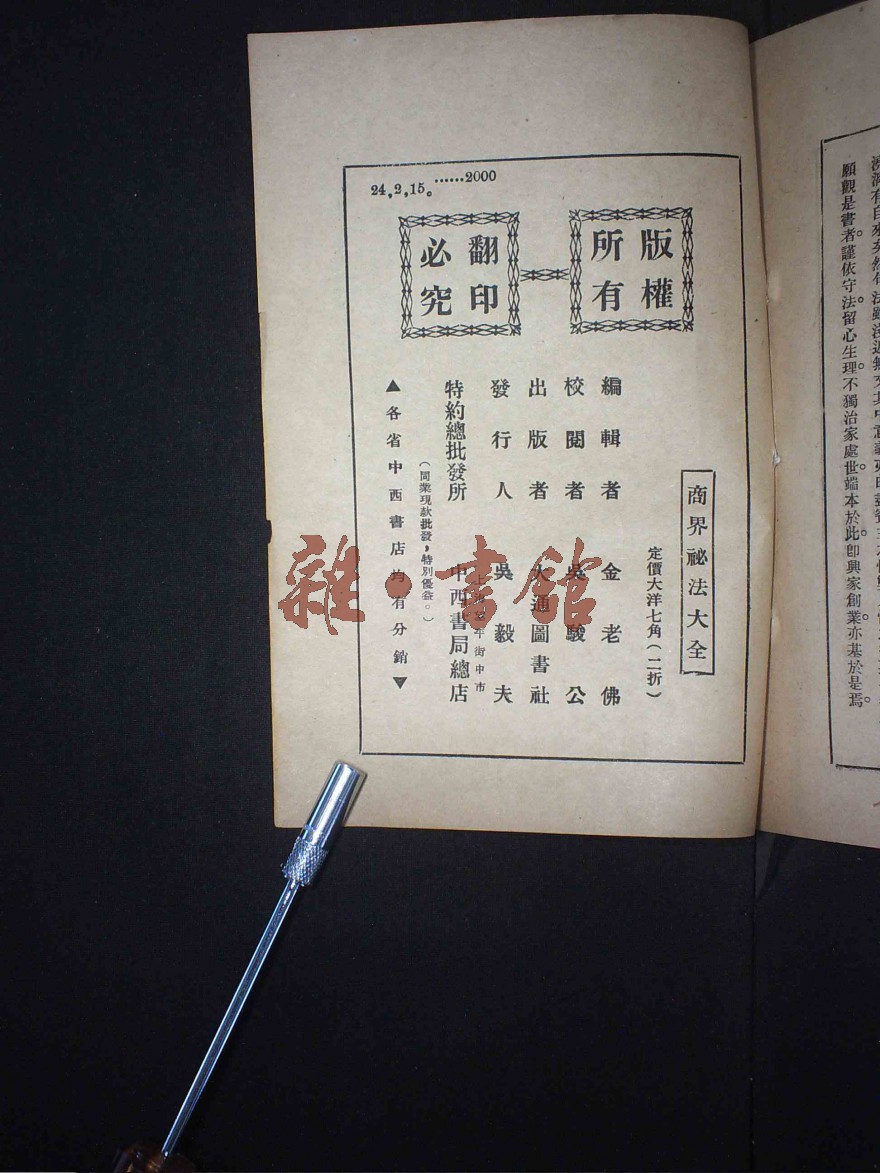 願觀是書者。謹依守法。留心生理。不獨治家處世。端本於此。卽興家創業。亦基於是焉。
24,2,15。……2000
版權所有
翻印必究
商界祕法大全
定價大洋七角(二折)
編輯者 金老佛
校閱者 吳駿公
出版者 大通圖書社
發行人 吳毅夫
特約總批發所 中西書局總店
街中市
(同業現款批發,特別優益。)
▲各省中西書店均有分銷▼
雜·書館